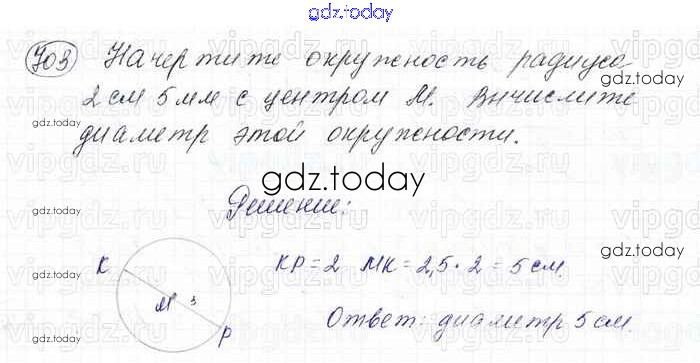 gdz.today
703 Начертите окружность радиуса
2 см 5 мм с центром М. Вычислите
диаметр этой окружности.
gdz.today
gdz.today
gdz.today
gdz.today
Решение:
gdz.today
gdz.today
K
KP = 2 MK = 2,5 · 2 = 5 см.
gdz.today
M 3
P
Ответ: диаметр 5 см.
gdz.today
gdz.today